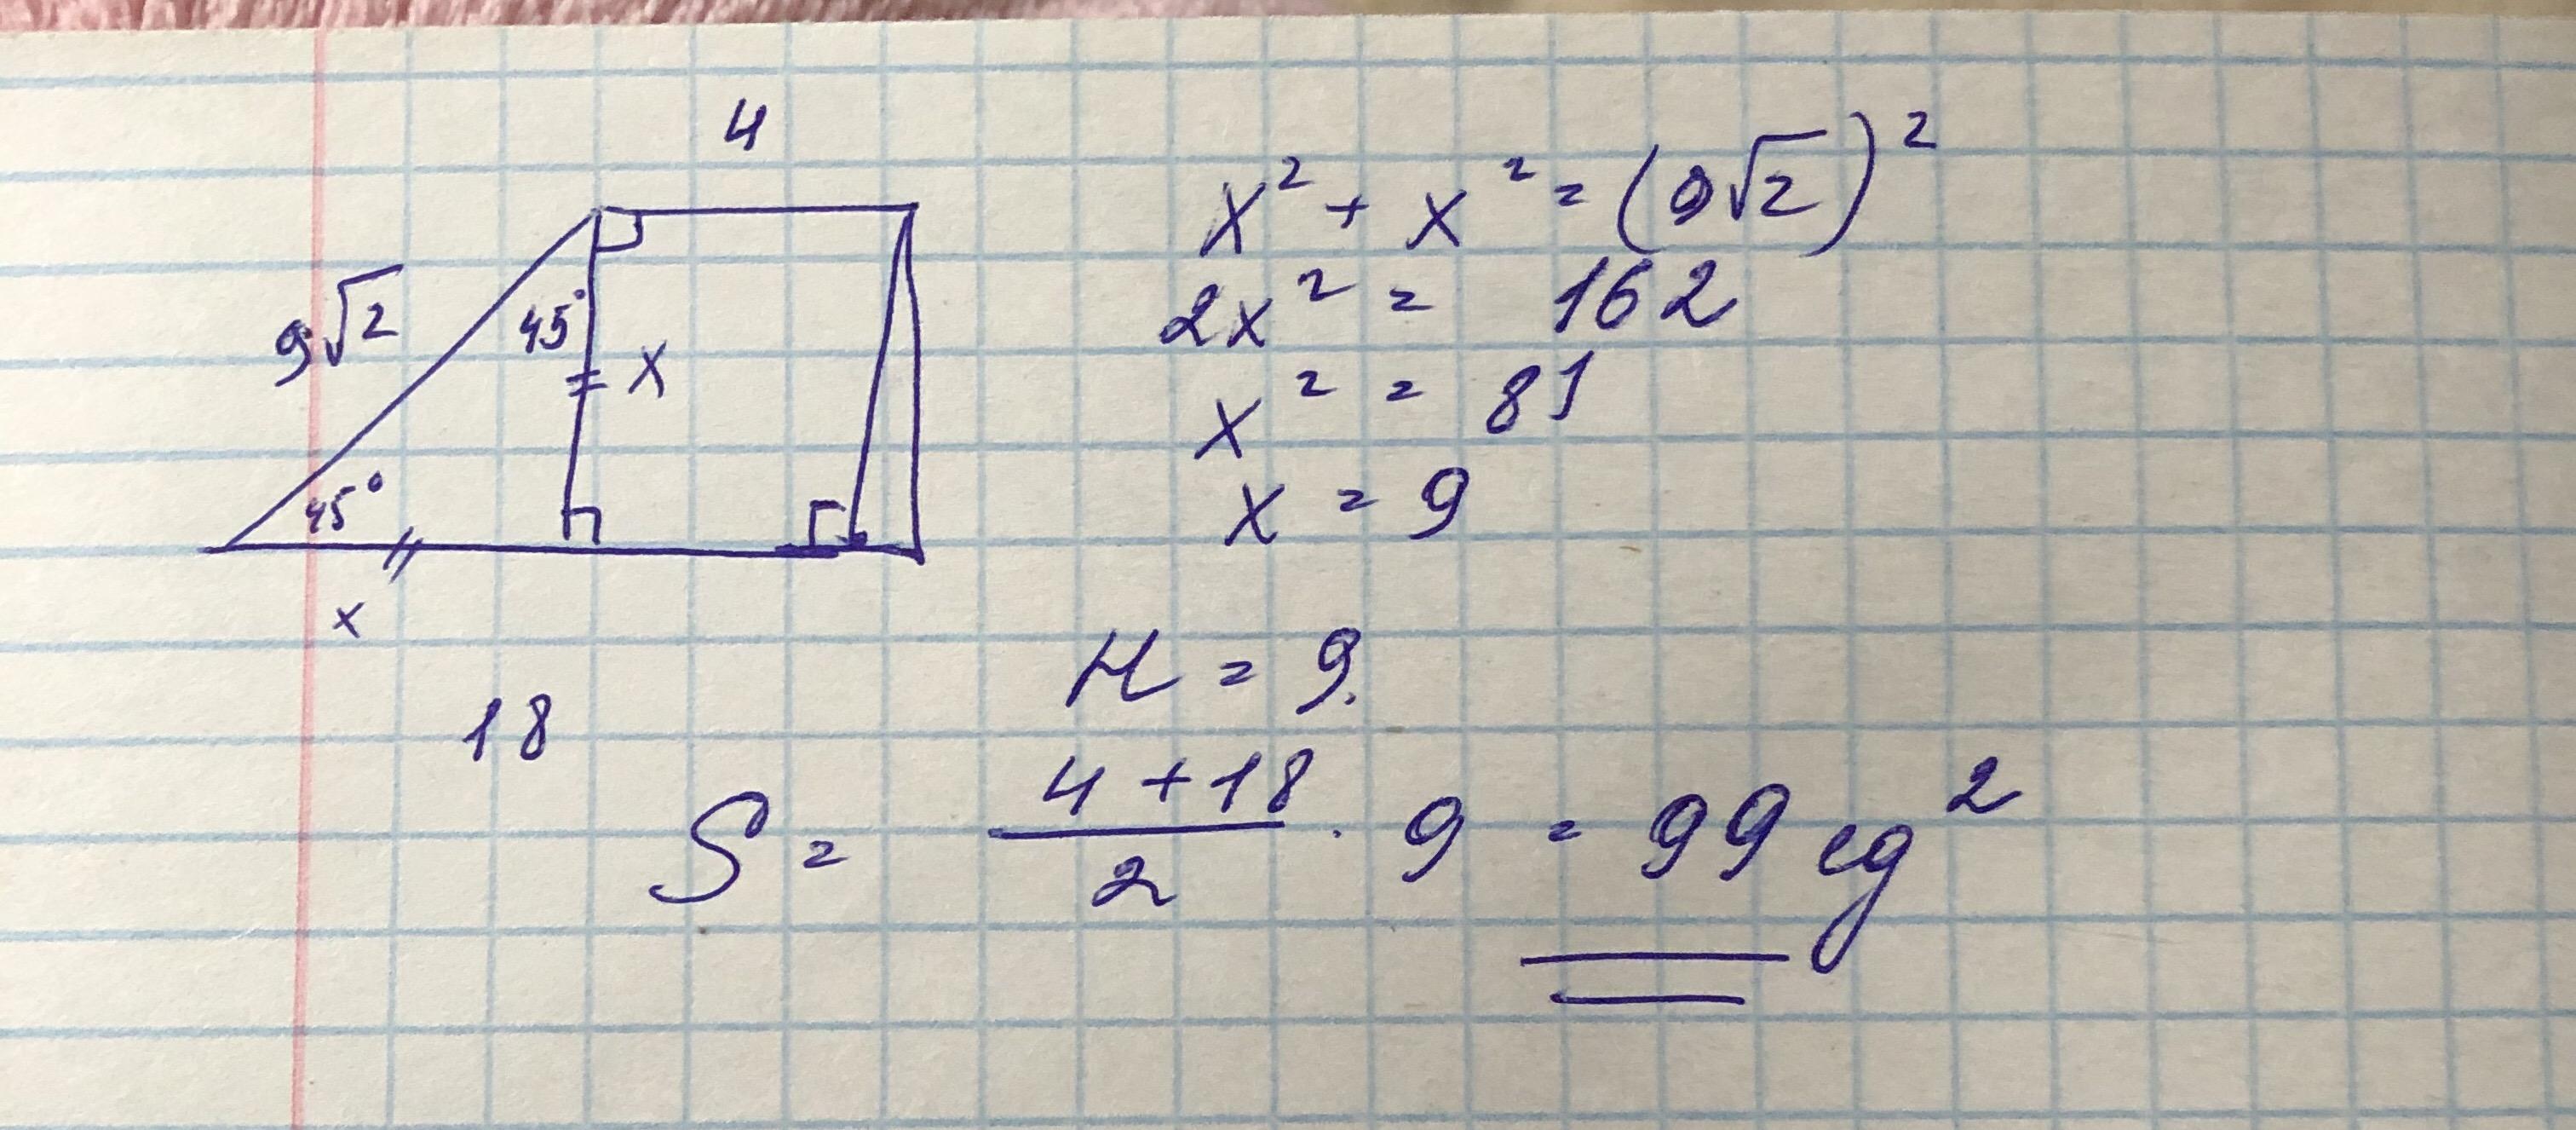 4
9√2
45°
x
45°
x
18
x² + x² = (9√2)²
2x² = 162
x² = 81
x = 9
H = 9.
S = (4 + 18)/2 · 9 = 99 eg²